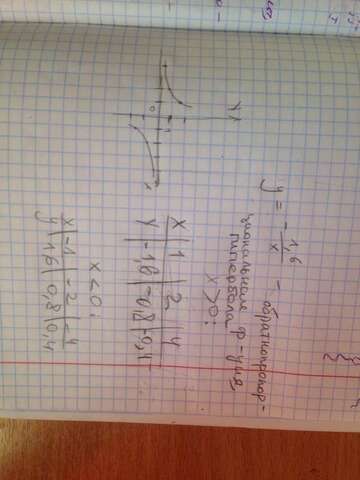 y = - 1,6/x - обратнопропор-
циональная ф-ция,
гипербола
x>0:
x | 1 | 2 | 4
y | -1,6 | -0,8 | -0,4
x<0:
x | -1 | -2 | -4
y | 1,6 | 0,8 | 0,4
y
0
1
x